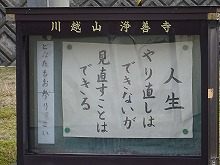 川越山 浄善寺
人生
やり直しは
できないが
見直すことは
できる
どなたもお参り下さい